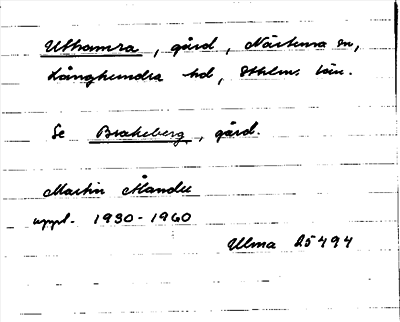 Uthamra, gård, Närtuna sn,
Långhundra hd, Sthlms län.
Se Brakeberg, gård.
Martin Ålander
uppt. 1930-1960
Ulma 25494